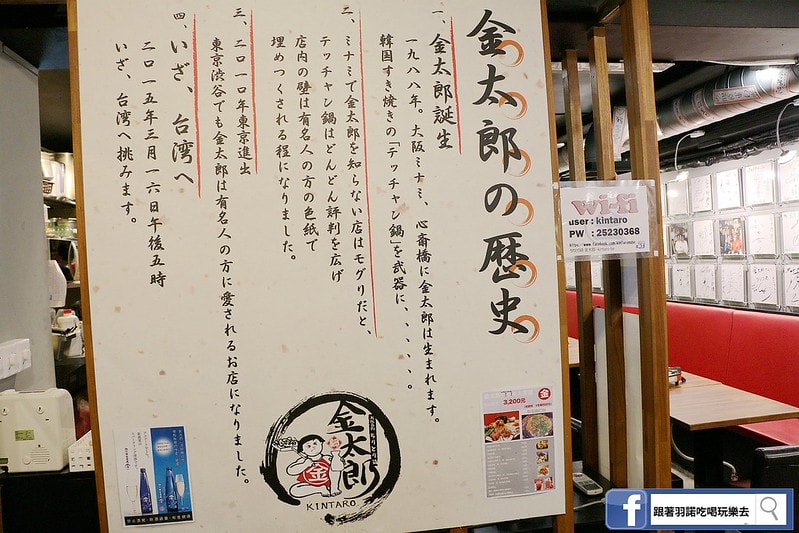 金太郎の歴史
一、金太郎誕生
一九八八年。大阪ミナミ、心斎橋に金太郎は生まれます。
韓国すき焼きの「テッチャン鍋」を武器に、、、、、。
二、ミナミで金太郎を知らない店はモグリだと、
テッチャン鍋はどんどん評判を広げ
店内の壁は有名人の方の色紙で
埋めつくされる程になりました。
三、二〇一〇年東京進出
東京渋谷でも金太郎は有名人の方に愛されるお店になりました。
四、いざ、台湾へ
二〇一五年三月一六日午後五時
いざ、台湾へ挑みます。
金太郎
金
KINTARO
wi-fi
user : kintaro
PW : 25230368
金
3,200元
跟著羽諾吃喝玩樂去